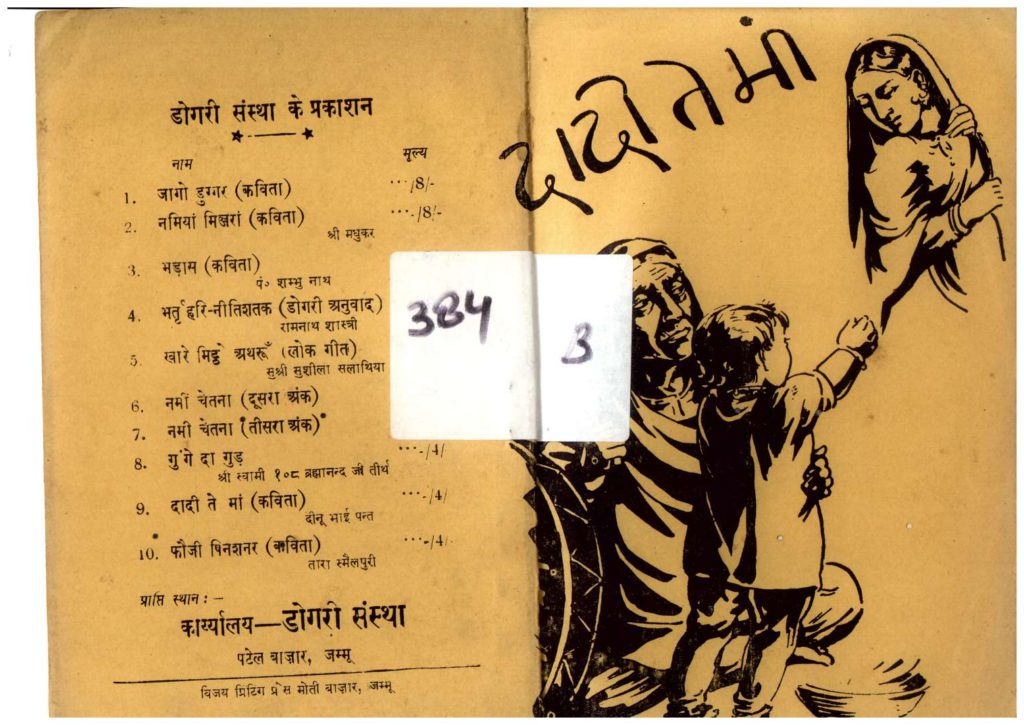 डोगरी संस्था के प्रकाशन
नाम मूल्य
1. जागो डुग्गर (कविता) ...-/8/-
2. नमियां मिञ्जरां (कविता) ...-/8/-
श्री मधुकर
3. भड़ास (कविता)
पं० शम्भु नाथ
4. भर्तृहरि-नीतिशतक (डोगरी अनुवाद)
रामनाथ शास्त्री
5. खारे मिट्ठे अथरूँ (लोक गीत)
सुश्री सुशीला सलाथिया
6. नमीं चेतना (दूसरा अंक)
7. नमी चेतना (तीसरा अंक)
8. गुंगे दा गुड़ ...-/4/
श्री स्वामी १०८ ब्रह्मानन्द जी तीर्थ
9. दादी ते मां (कविता) ...-/4/
दीनू भाई पन्त
10. फौजी पिनशनर (कविता) ...-/4/
तारा स्मैलपुरी
प्राप्ति स्थान : –
कार्य्यालय—डोगरी संस्था
पटेल बाज़ार, जम्मू
विजय प्रिटिंग प्रेस मोती बाज़ार, जम्मू
384
3
दादी ते मां